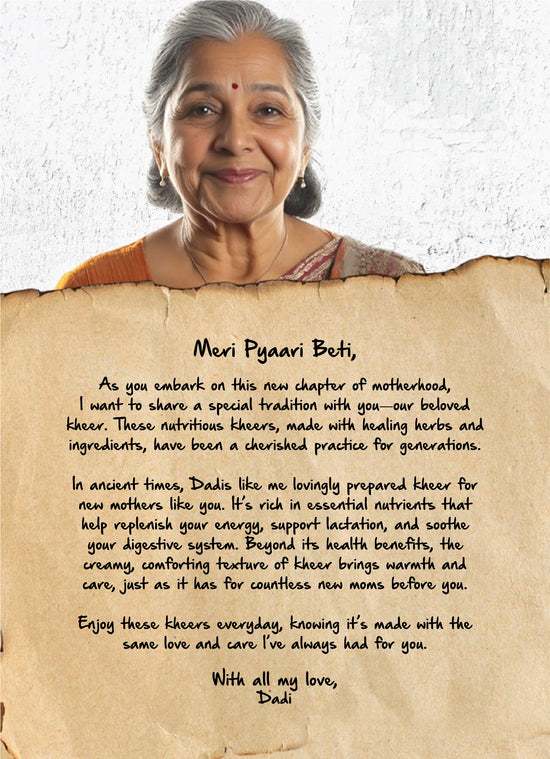 Meri Pyaari Beti,
As you embark on this new chapter of motherhood,
I want to share a special tradition with you—our beloved
kheer. These nutritious kheers, made with healing herbs and
ingredients, have been a cherished practice for generations.
In ancient times, Dadis like me lovingly prepared kheer for
new mothers like you. It's rich in essential nutrients that
help replenish your energy, support lactation, and soothe
your digestive system. Beyond its health benefits, the
creamy, comforting texture of kheer brings warmth and
care, just as it has for countless new moms before you.
Enjoy these kheers everyday, knowing it's made with the
same love and care I've always had for you.
With all my love,
Dadi